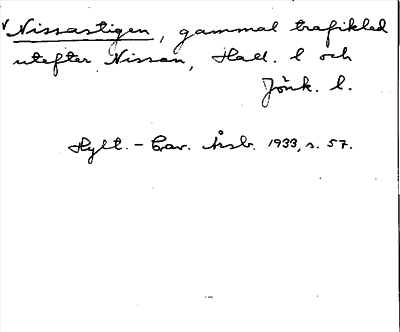 √Nissastigen, gammal trafikled
utefter Nissan, Hall. l och
Jönk. l.
Hylt.-Cav. Årsb. 1933, s. 57.